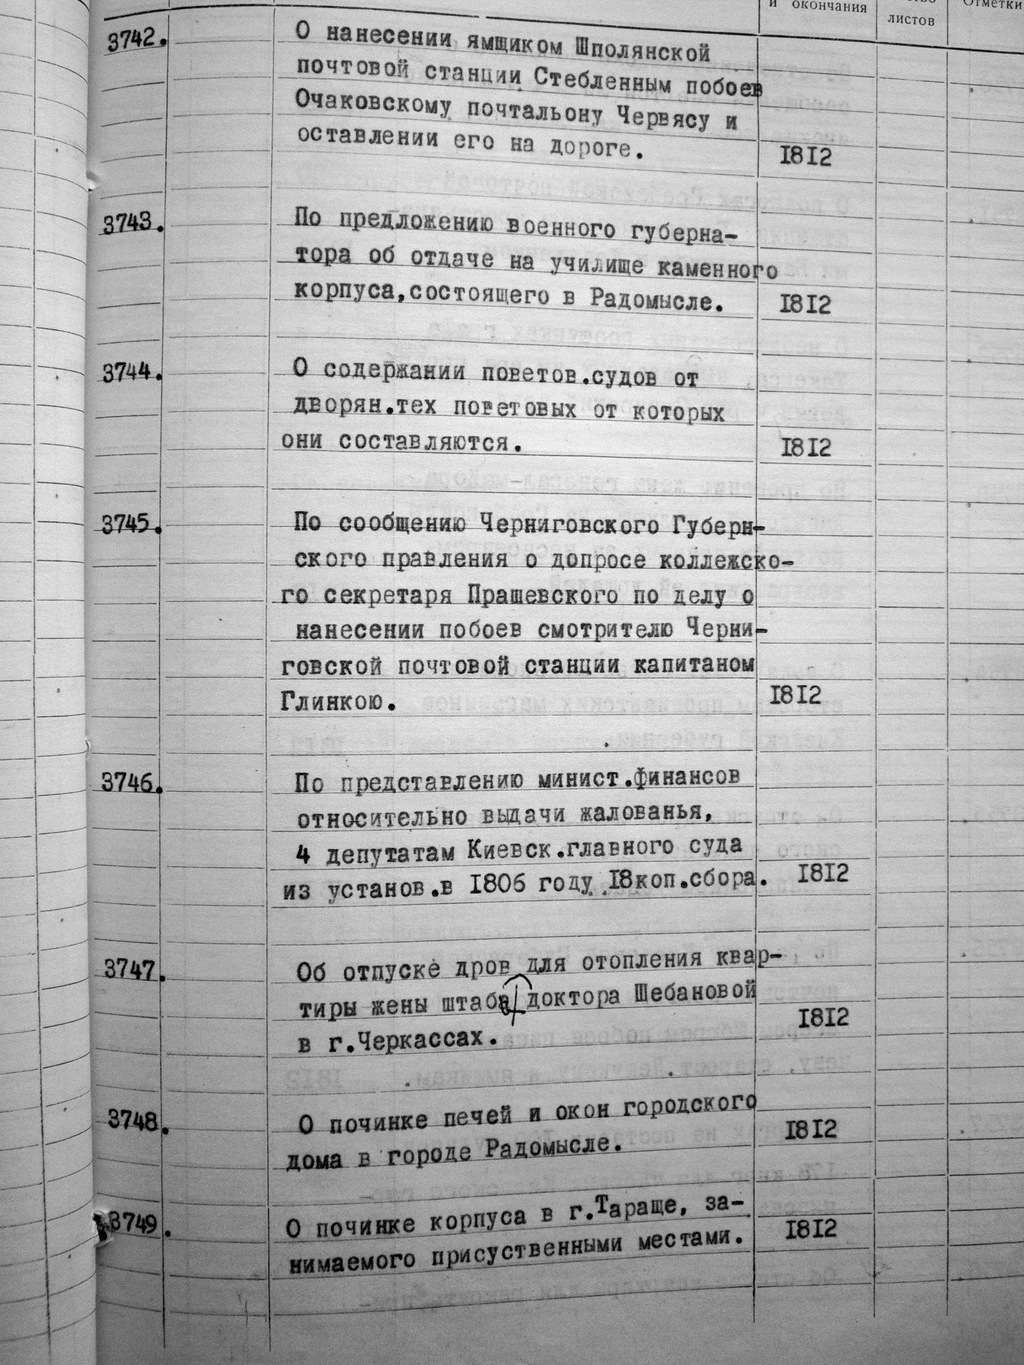 и окончания
листов
Отметки
3742. О нанесении ямщиком Шполянской
почтовой станции Стебленным побоев
Очаковскому почтальону Червясу и
оставлении его на дороге. 1812
3743. По предложению военного губерна-
тора об отдаче на училище каменного
корпуса,состоящего в Радомысле. 1812
3744. О содержании поветов.судов от
дворян.тех поветовых от которых
они составляются. 1812
3745. По сообщению Черниговского Губерн-
ского правления о допросе коллежско-
го секретаря Прашевского по делу о
нанесении побоев смотрителю Черни-
говской почтовой станции капитаном
Глинкою. 1812
3746. По представлению минист.финансов
относительно выдачи жалованья,
4 депутатам Киевск.главного суда
из установ.в 1806 году 18коп.сбора. 1812
3747. Об отпуске дров для отопления квар-
тиры жены штаба доктора Шебановой
в г.Черкассах. 1812
3748. О починке печей и окон городского
дома в городе Радомысле. 1812
3749. О починке корпуса в г.Тараще, за-
нимаемого присуственными местами. 1812